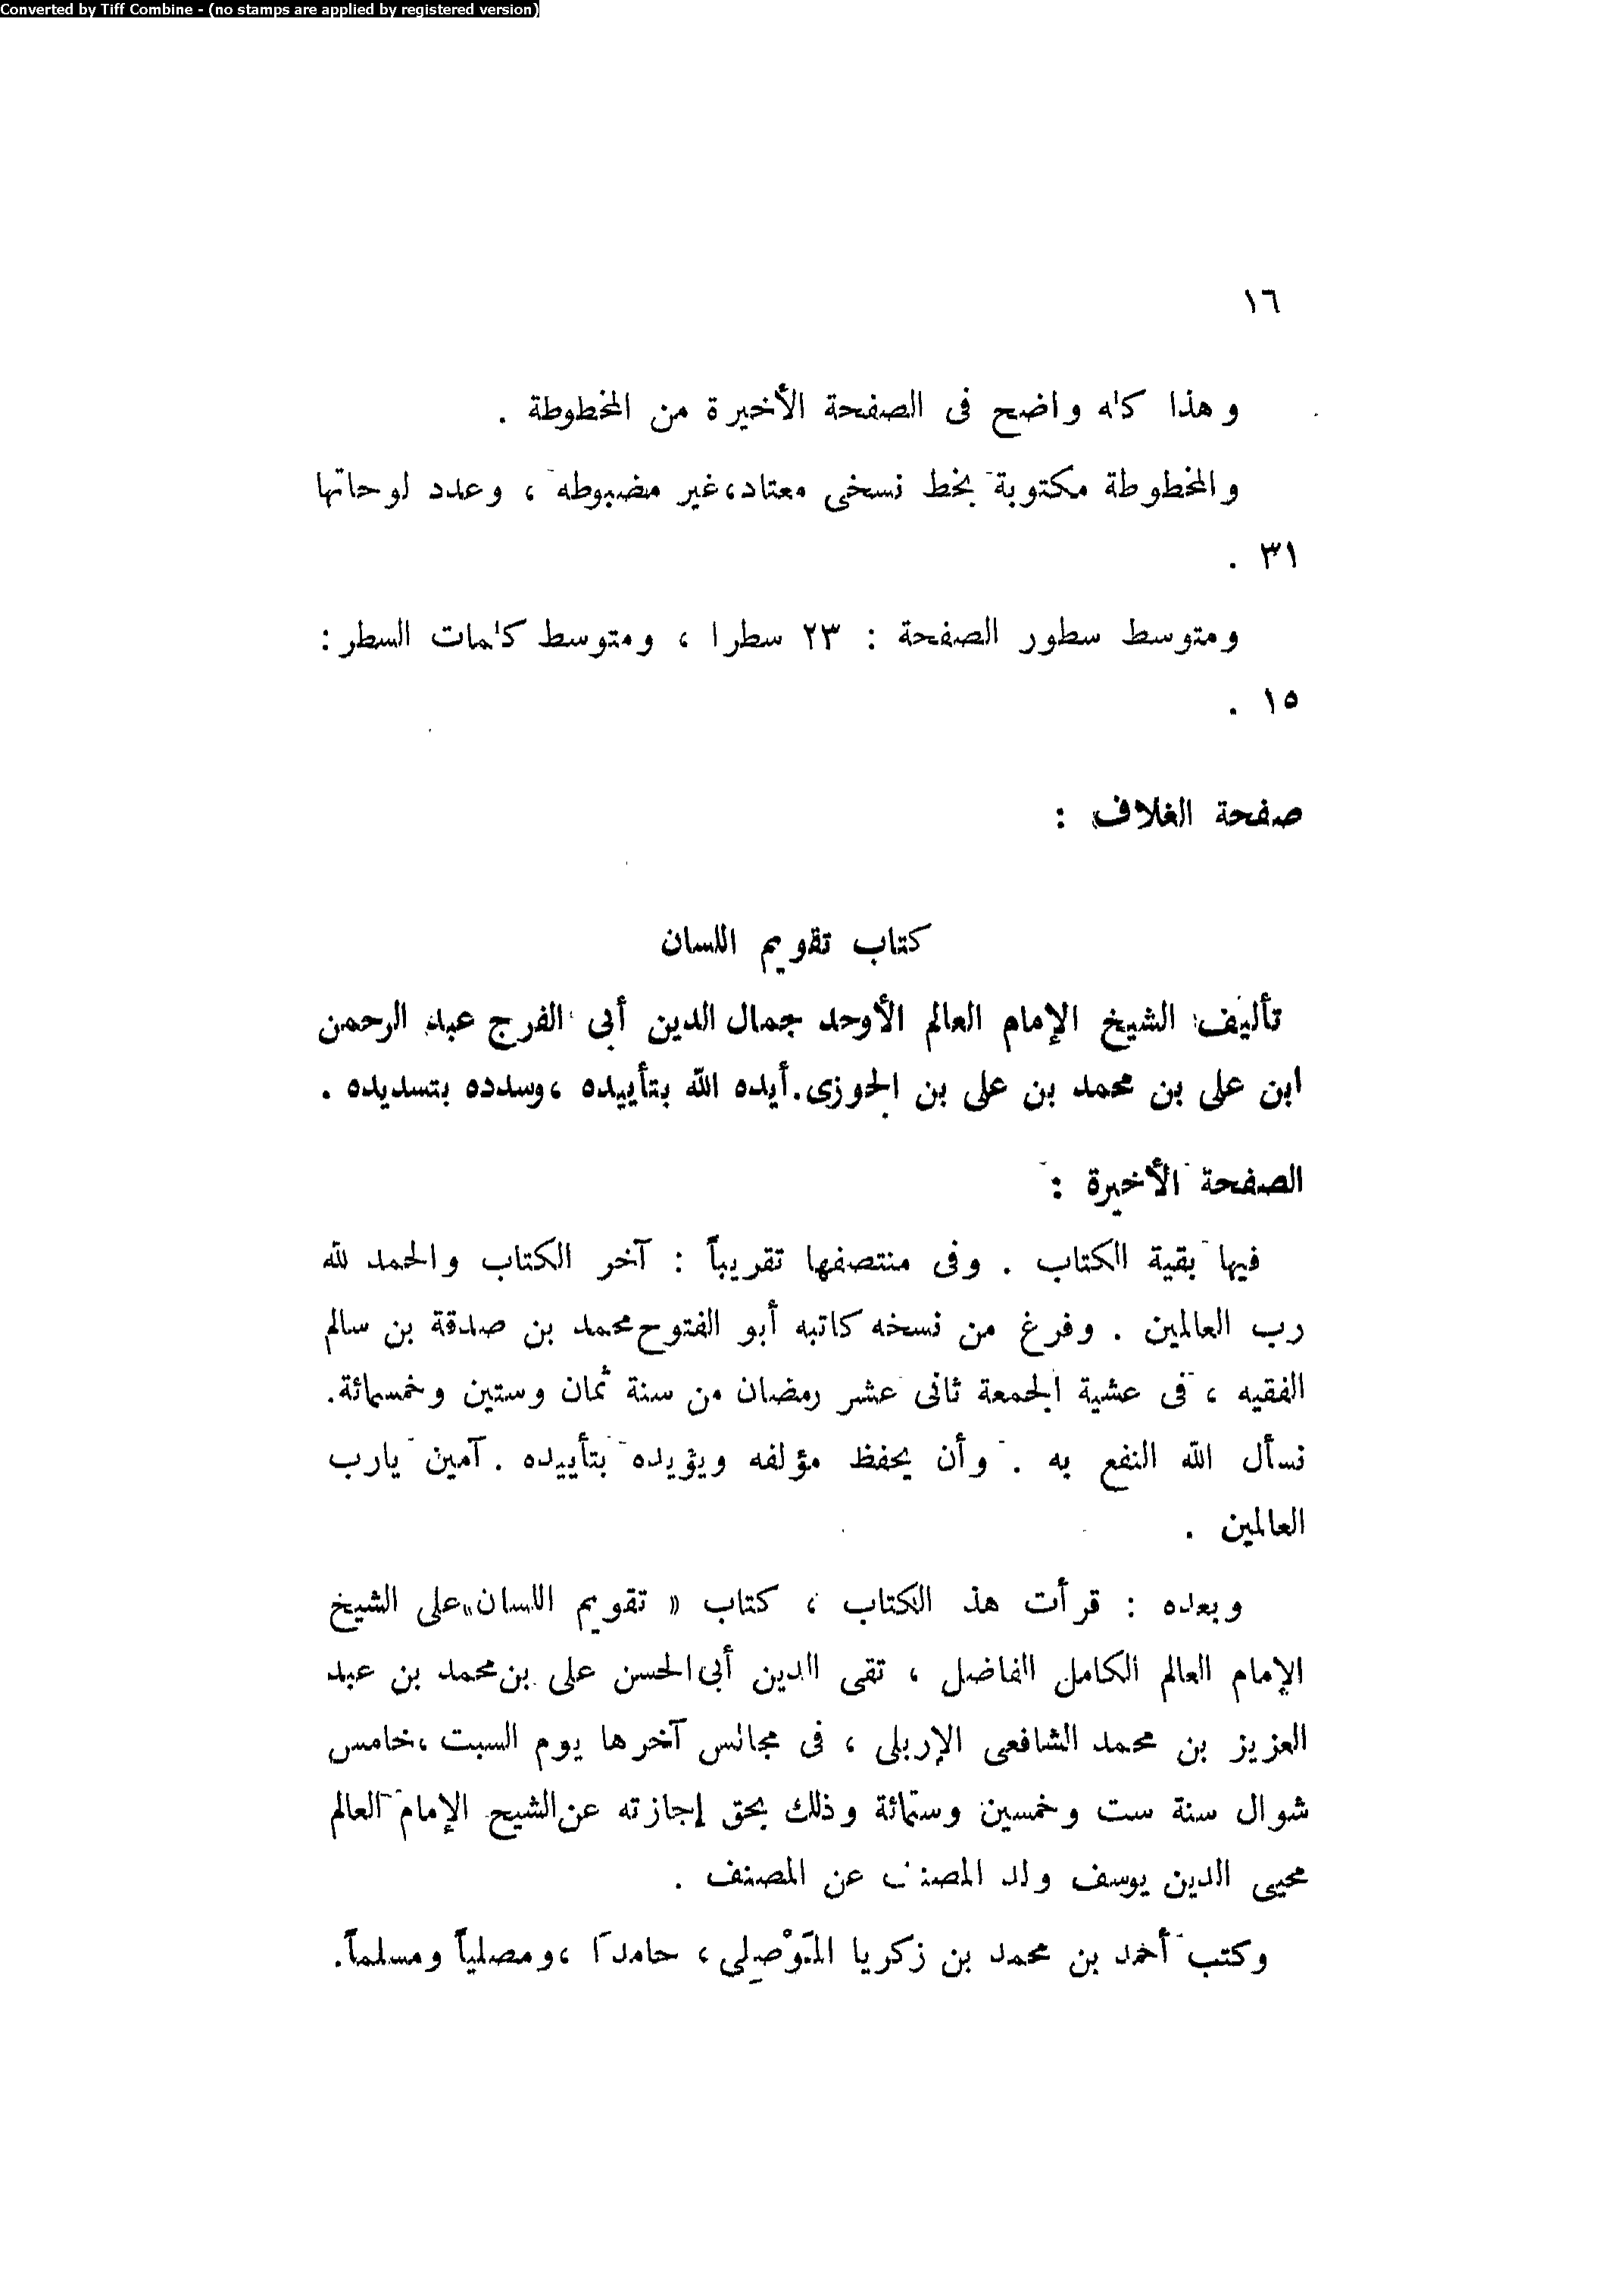 Converted by Tiff Combine - (no stamps are applied by registered version)
١٦
وهذا كله واضح فى الصفحة الأخيرة من المخطوطة .
والمخطوطة مكتوبة بخط نسخى معتاد، غير مضبوطه ، وعدد لوحاتها
٣١ .
ومتوسط سطور الصفحة : ٢٣ سطرا ، ومتوسط كلمات السطر :
١٥ .
صفحة الغلاف :
كتاب تقويم اللسان
تأليف الشيخ الإمام العالم الأوحد جمال الدين أبى الفرج عبد الرحمن
ابن على بن محمد بن على بن الجوزى. أيده الله بتأييده ، وسدده بتسديده .
الصفحة الأخيرة :
فيها بقية الكتاب . وفى منتصفها تقريباً : آخر الكتاب والحمد لله
رب العالمين . وفرغ من نسخه كاتبه أبو الفتوح محمد بن صدقة بن سالم
الفقيه ، فى عشية الجمعة ثانى عشر رمضان من سنة ثمان وستين وخمسمائة.
نسأل الله النفع به . وأن يحفظ مؤلفه ويؤيده بتأييده . آمين يارب
العالمين .
وبعده : قرأت هذ الكتاب ، كتاب « تقويم اللسان» على الشيخ
الإمام العالم الكامل الفاضل ، تقى الدين أبى الحسن على بن محمد بن عبد
العزيز بن محمد الشافعى الإربلى ، فى مجالس آخرها يوم السبت ، خامس
شوال سنة ست وخمسين وستمائة وذلك بحق إجازته عن الشيح الإمام العالم
محيى الدين يوسف ولد المصنف عن المصنف .
وكتب أحمد بن محمد بن زكريا المَوْصِلى ، حامداً ، ومصلياً ومسلماً.